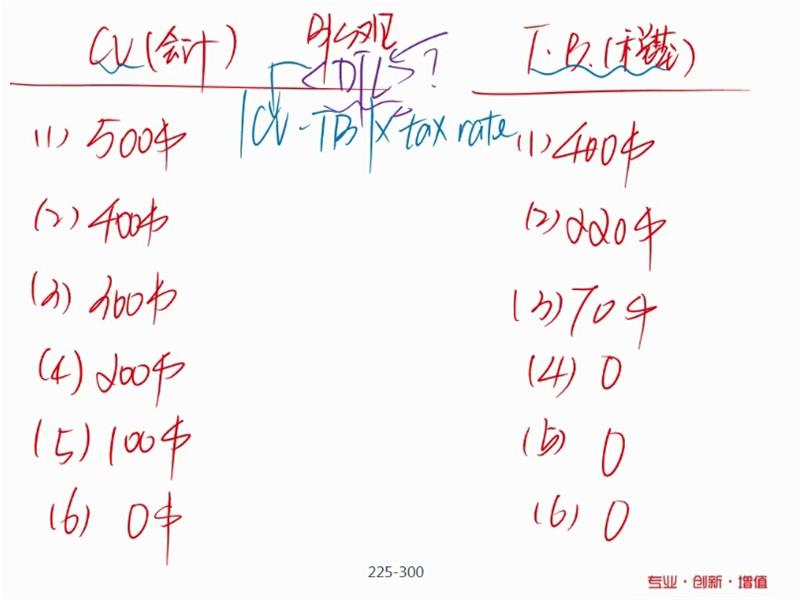 CV (会计)
时间观
T.B. (税基)
DTL ?
|CV - TB| × tax rate
(1) 500中
(1) 400中
(2) 400中
(2) 220中
(3) 300中
(3) 70中
(4) 200中
(4) 0
(5) 100中
(5) 0
(6) 0中
(6) 0
225-300
专业·创新·增值